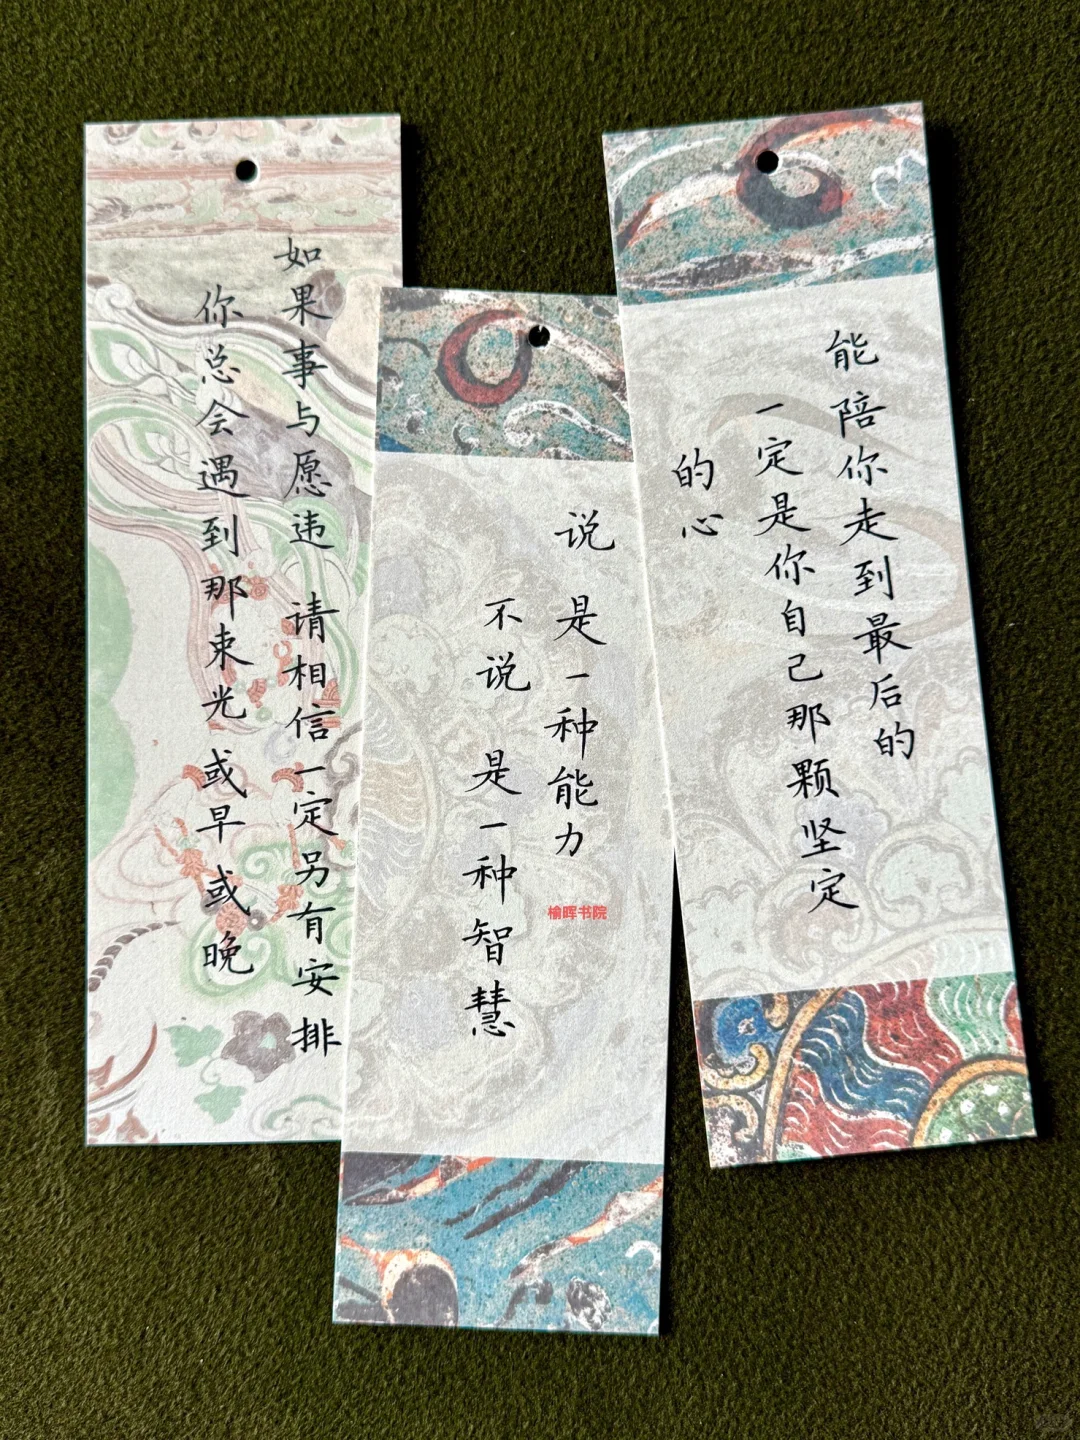 如果事与愿违 请相信一定另有安排
你总会遇到那束光 或早或晚
说 是一种能力
不说 是一种智慧
榆晖书院
能陪你走到最后的
一定是你自己那颗坚定
的心